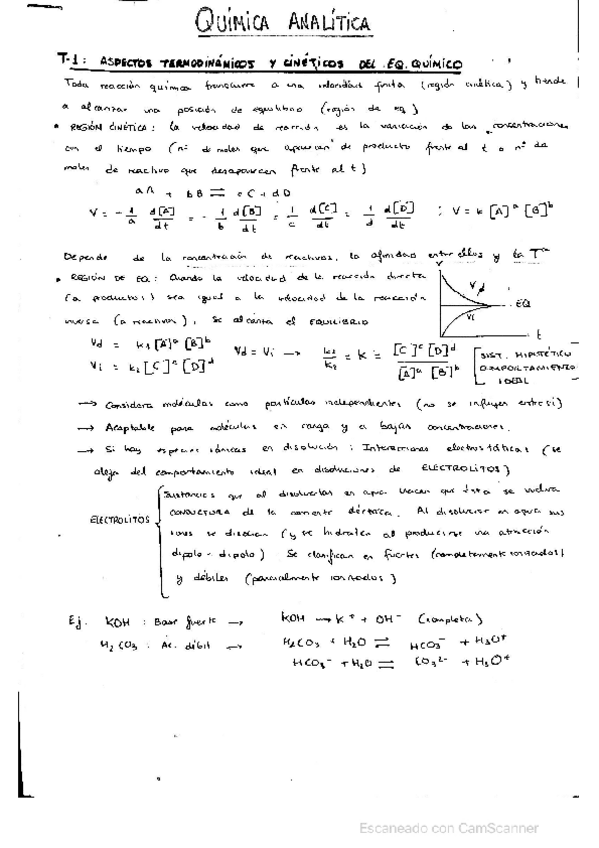 QUÍMICA ANALÍTICA
T-1: ASPECTOS TERMODINÁMICOS Y CINÉTICOS DEL EQ. QUÍMICO
Toda reacción química transcurre a una velocidad finita (región cinética) y tiende
a alcanzar una posición de equilibrio (región de eq)
• REGIÓN CINÉTICA: La velocidad de reacción es la variación de las concentraciones
con el tiempo (nº de moles que aparecen de producto frente al t o nº de
moles de reactivo que desaparecen frente al t)
aA + bB ⇌ cC + dD
V = - 1/a d[A]/dt = - 1/b d[B]/dt = 1/c d[C]/dt = 1/d d[D]/dt ; V = k [A]ᵃ [B]ᵇ
Depende de la concentración de reactivos, la afinidad entre ellos y la Tª
• REGIÓN DE EQ: Cuando la velocidad de la reacción directa
(a productos) sea igual a la velocidad de la reacción
inversa (a reactivos), se alcanza el EQUILIBRIO
V
Vd
EQ
Vi
t
Vd = k₁ [A]ᵃ [B]ᵇ
Vi = k₂ [C]ᶜ [D]ᵈ
Vd = Vi → = K = [C]ᶜ [D]ᵈ / [A]ᵃ [B]ᵇ
SIST. HIPOTÉTICO
COMPORTAMIENTO
IDEAL
→ Considera moléculas como partículas independientes (no se influyen entre sí)
→ Aceptable para moléculas sin carga y a bajas concentraciones.
→ Si hay especies iónicas en disolución: Interacciones electrostáticas (se
aleja del comportamiento ideal en disoluciones de ELECTROLITOS)
ELECTROLITOS
Sustancias que al disolverlas en agua hacen que ésta se vuelva
CONDUCTORA de la corriente eléctrica. Al disolverse en agua sus
iones se disocian (y se hidratan al producirse una atracción
dipolo-dipolo) Se clasifican en fuertes (completamente ionizados)
y débiles (parcialmente ionizados)
Ej. KOH : Base fuerte → KOH → K⁺ + OH⁻ (completa)
H₂CO₃ : Ác. débil → H₂CO₃ + H₂O ⇌ HCO₃⁻ + H₃O⁺
HCO₃⁻ + H₂O ⇌ CO₃²⁻ + H₃O⁺
Escaneado con CamScanner